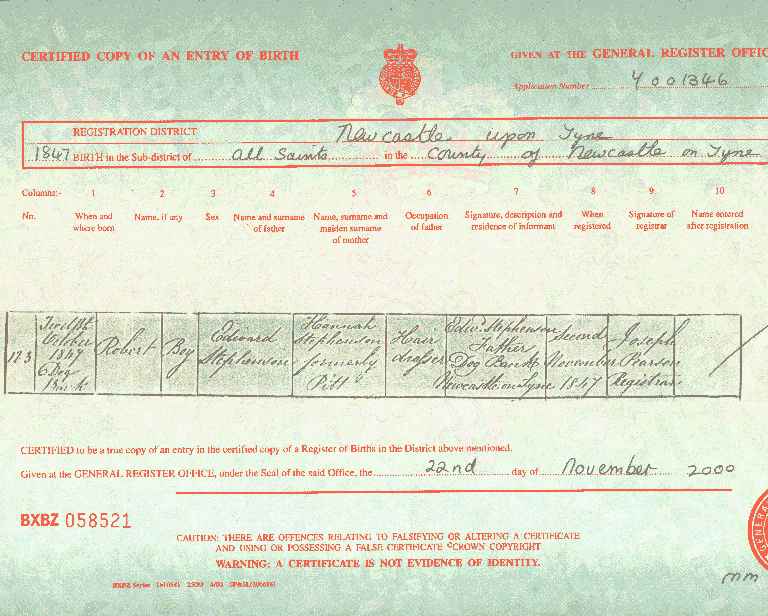 CERTIFIED COPY OF AN ENTRY OF BIRTH
GIVEN AT THE GENERAL REGISTER OFFIC
Application Number Y 001346
REGISTRATION DISTRICT Newcastle upon Tyne
1847 BIRTH in the Sub-district of All Saints in the County of Newcastle on Tyne
Columns:- 1 2 3 4 5 6 7 8 9 10
No. When and where born Name, if any Sex Name and surname of father Name, surname and maiden surname of mother Occupation of father Signature, description and residence of informant When registered Signature of registrar Name entered after registration
173
Twelfth
October
1847
6 Dog
Bank
Robert
Boy
Edward
Stephenson
Hannah
Stephenson
formerly
Pitt
Hair
dresser
Edw. Stephenson
Father
Dog Bank
Newcastle on Tyne
Second
November
1847
Joseph
Pearson
Registrar
CERTIFIED to be a true copy of an entry in the certified copy of a Register of Births in the District above mentioned.
Given at the GENERAL REGISTER OFFICE, under the Seal of the said Office, the 22nd day of November 2000
BXBZ 058521
CAUTION: THERE ARE OFFENCES RELATING TO FALSIFYING OR ALTERING A CERTIFICATE
AND USING OR POSSESSING A FALSE CERTIFICATE ©CROWN COPYRIGHT
WARNING: A CERTIFICATE IS NOT EVIDENCE OF IDENTITY.
BXBZ Series
GENERA
mm